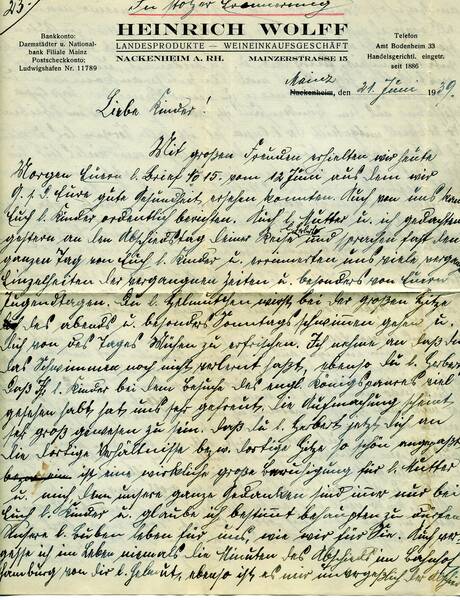 23.
In stolzer Erinnerung
HEINRICH WOLFF
LANDESPRODUKTE – WEINEINKAUFSGESCHÄFT
NACKENHEIM A. RH. MAINZERSTRASSE 15
Bankkonto:
Darmstädter u. National-
bank Filiale Mainz
Postscheckkonto:
Ludwigshafen Nr. 11789
Telefon
Amt Bodenheim 33
Handelsgerichtl. eingetr.
seit 1886
Mainz
Nackenheim, den 21. Juni 1939.
Liebe Kinder!
Mit großen Freuden erhielten wir heute
Morgen Euern l. Brief No 15. vom 12 Juni aus dem wir
G. s. D. Eure gute Gesundheit ersehen konnten. Auch von uns kann
Euch l. Kinder ordentlich berichten. Auch l. Mutter u. ich gedachten
gestern an den Abschiedstag deiner Reise l. Herbert und sprachen fast den
ganzen Tag von Euch l. Kinder u. erinnerten uns viele
Einzelheiten der vergangnen Zeiten u. besonders von Euern
Jugendtagen. Du l. Helmut wirst bei der großen Hitze
des abends u. besonders Sonntags schwimmen gehen u.
Dich von des Tages Mühen zu erfrischen. Ich nehme an daß
das Schwimmen noch nicht verlernt habt, ebenso Du l. Herbert
Daß Ihr l. Kinder bei dem Besuche des engl. Königspaares viel
gesehen habt hat uns sehr gefreut. Die Aufmachung scheint
sehr groß gewesen zu sein. Daß Du l. Herbert jetzt Dich an
die dortige Verhältnisse bezw. dortige Hitze so schön angepaßt
ist eine wirkliche große Beruhigung für l. Mutter
u. mich, denn unsere ganze Gedanken sind immer nur bei
Euch l. Kinder u. glaube ich bestimmt behaupten zu dürfen
Unsere l. Buben leben für uns, wie wir für Sie. Auch
gesse ich im Leben niemals die Minuten des Abschieds im Bahnhof
Hamburg von dir l. Helmut, ebenso ist es mir unvergeßlich der